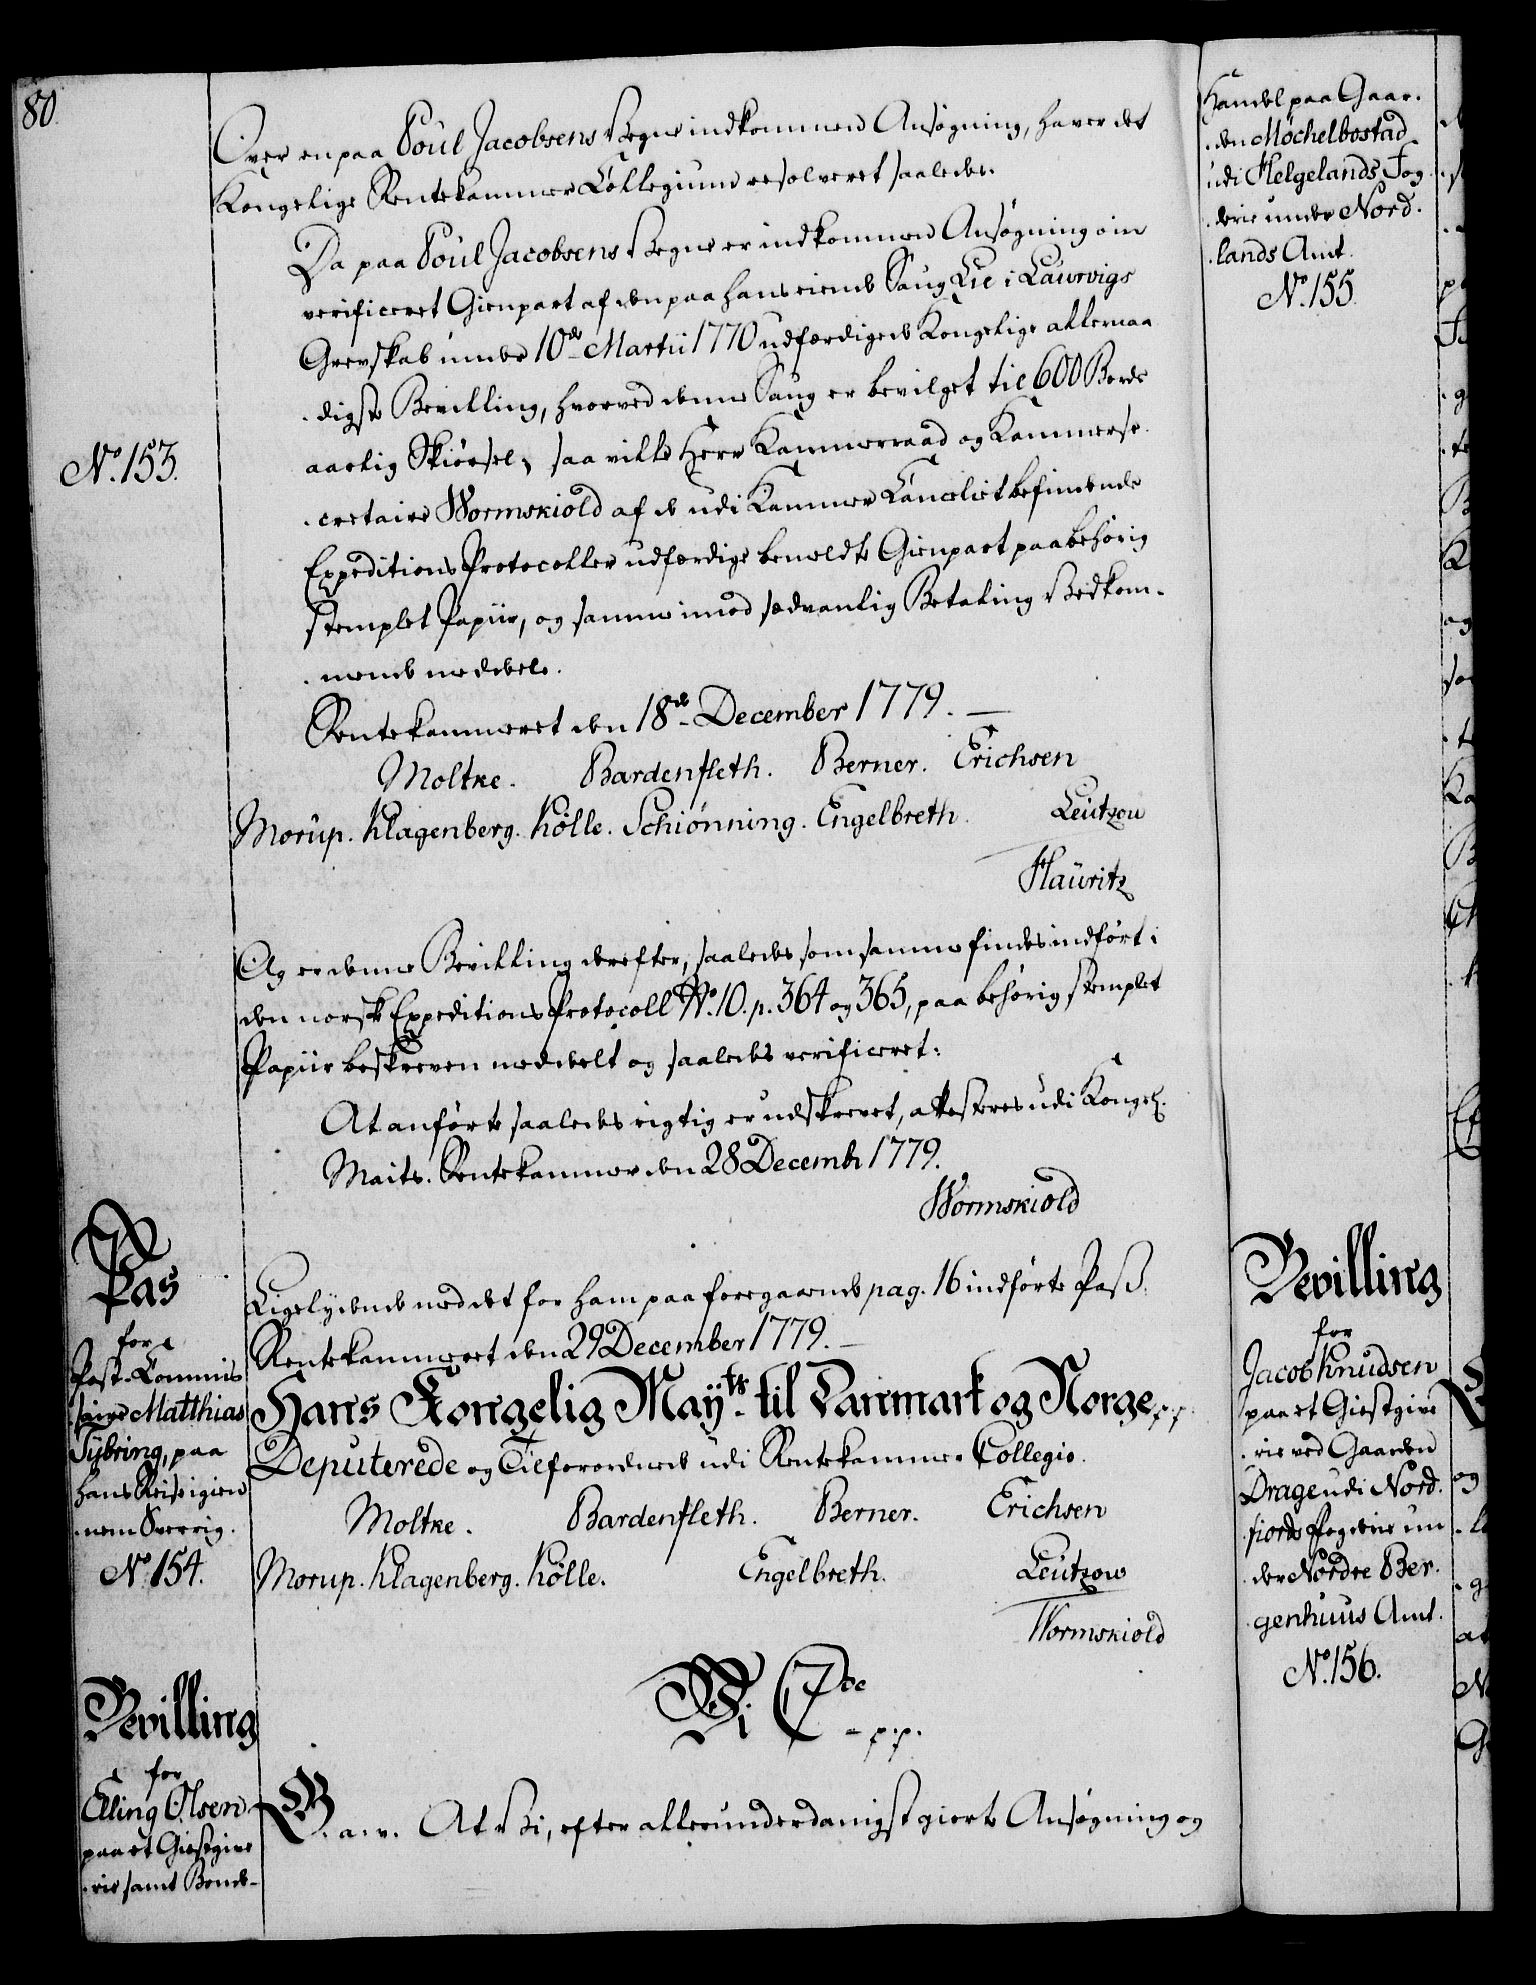 80.
Over en paa Poul Jacobsens Vegne indkommen Ansøgning, haver det
Kongelige Rentekammer Collegium resolveret saaledes.
Da paa Poul Jacobsens Vegne er indkommen Ansøgning om
verificeret Gienpart af den paa hans eiende Saug Lie i Laurvigs
Grevskab under 10de Martii 1770 udfærdigede Kongelige allernaa
digste Bevilling, hvorved denne Saug er bevilget til 600 Bords
aarlig Skiørsel, saa ville Herr Kammerraad og Kammerse-
cretaire Wormskiold af de udi Kammer Canceliet befindende
Expeditions Protocoller udfærdige bemeldte Gienpart paa behørig
stemplet Papiir, og samme imod sædvanlig Betaling Vedkom-
mende meddele.
Rentekammeret den 18de December 1779. —
Moltke. Bardenfleth. Berner. Erichsen
Morup. Klagenberg. Kølle. Schiønning. Engelbreth. Leutzow
Hauritz
No. 153.
Og er denne Bevilling derefter, saaledes som samme findes indført i
den norske Expeditions Protocoll No. 10. p. 364 og 365, paa behørig stemplet
Papiir beskreven meddelt og saaledes verificeret:
At anførte saaledes rigtig er udskrevet, attesteres udi Kongel.
Maits. Rentekammer den 28 Decembr 1779.
Wormskiold
Pas
for
Post-Commis
saire Matthias
Tybring, paa
hans Reise igien
nem Sverrig.
No. 154.
Ligelydende med det for ham paa foregaaende pag. 16 indførte Pass.
Rentekammeret den 29 December 1779. —
Hans Kongelig Mayts. til Danmark og Norge p.p.
Deputerede og Tilforordnede udi Rentekammer Collegio.
Moltke. Bardenfleth. Berner. Erichsen
Morup. Klagenberg. Kølle. Engelbreth. Leutzow
Wormskiold
Bevilling
for
Elling Olsen
paa et Giestgive
rie samt Bonde-
Vi C 7de p.p.
G. a. v. At Vi, efter allerunderdanigst giorte Ansøgning og
Handel paa Gaar-
den Möchelbostad
udi Helgelands Fog
derie under Nord-
lands Amt.
No. 155.
Bevilling
for
Jacob Knudsen
paa et Giestgive
rie ved Gaarden
Drage udi Nord-
fiords Fogderie un
der Nordre Ber-
genhuus Amt.
No. 156.